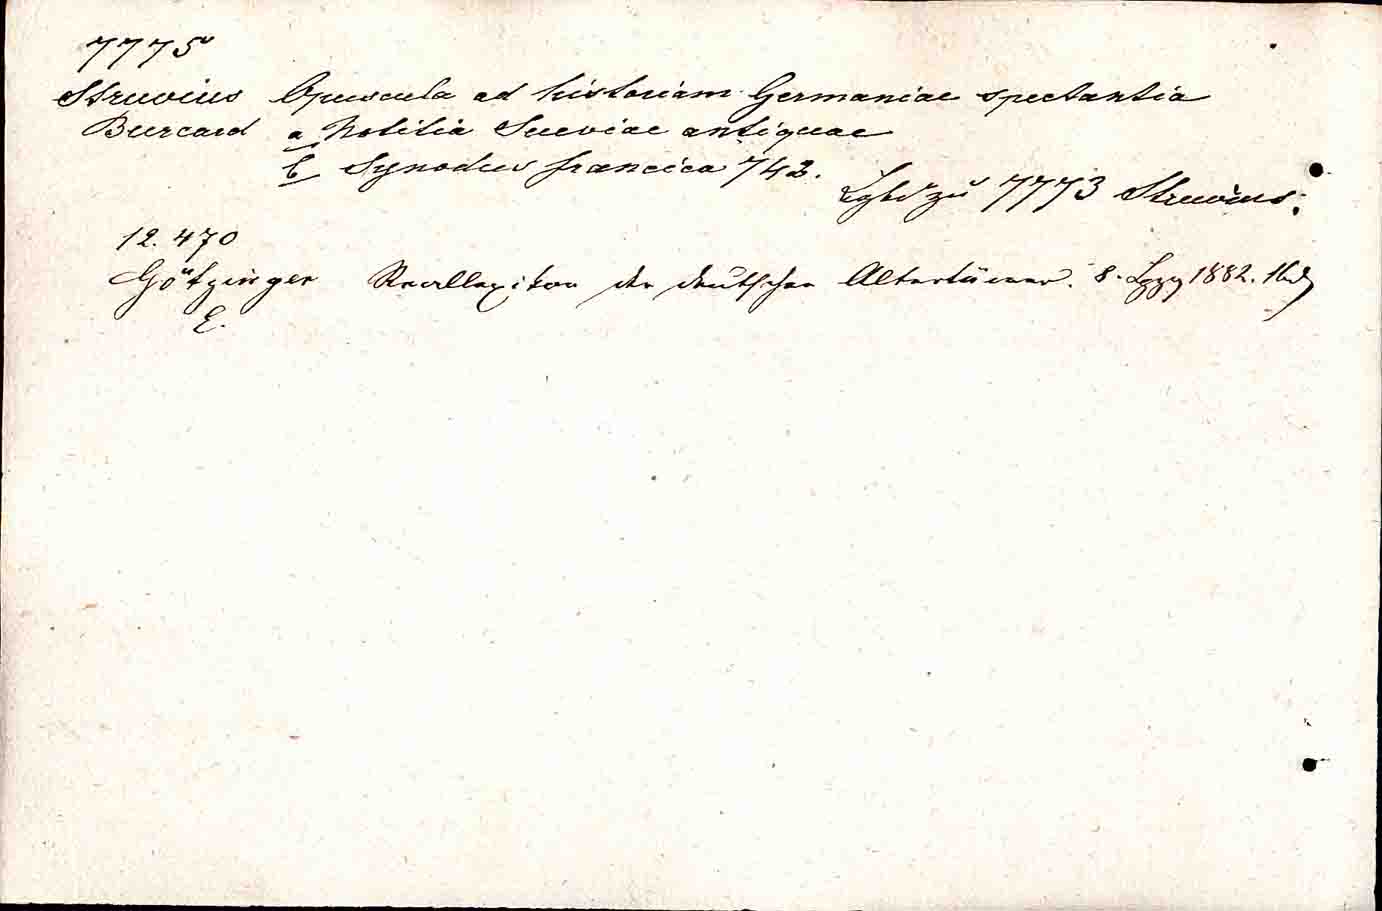 7775
Struvius Opuscula ad historiam Germaniae spectantia
Burcard a Notitia Sueviae antiquae
b Synodus francica 742.
zu 7773 Struvius.
12.470
Götzinger Reallexikon der deutschen Altertümer. 8. Lpzg 1882. 1 Bd
E.